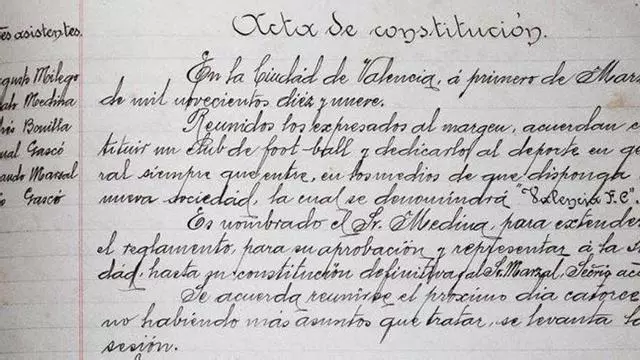 Acta de constitución.
es asistentes.
En la Ciudad de Valencia, á primero de Marz
de mil novecientos diez y nueve.
Reunidos los expresados al margen, acuerdan
tituir un Club de foot-ball y dedicarlo al deporte en ge
ral siempre que entre, en los medios de que disponga l
nueva sociedad, la cual se denominará "Valencia F.C".
Es nombrado el Sr. Medina, para extende
el reglamento, para su aprobación y representar á la s
dad, hasta su constitución definitiva, al Sr. Marzal,
Se acuerda reunirse el próximo dia catorce
no habiendo más asuntos que tratar, se levanta la
sesión.
gusto Milego
Medina
Bonilla
ual Gascó
ando Marzal
Gascó